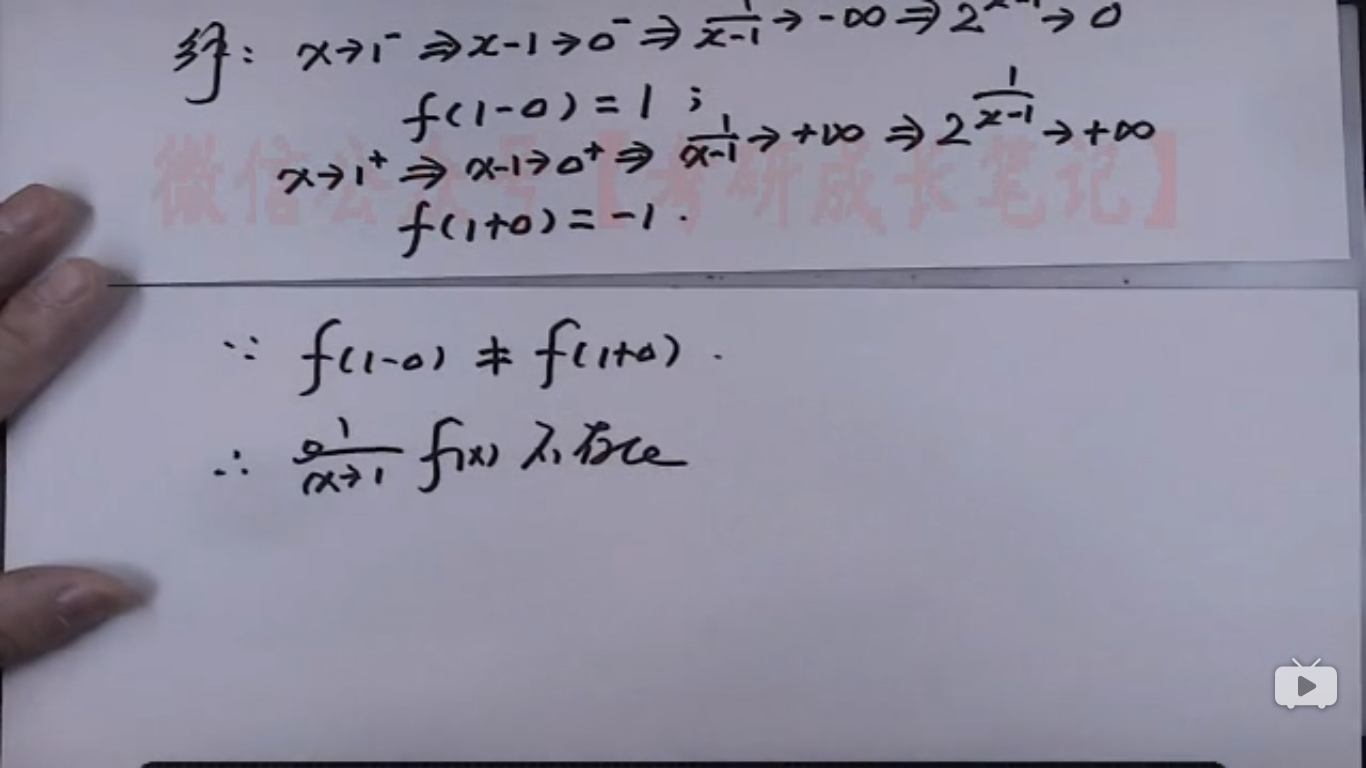 解: x→1⁻ ⇒ x-1→0⁻ ⇒ 1/(x-1) → -∞ ⇒ 2^(1/(x-1)) → 0
f(1-0) = 1 ;
x→1⁺ ⇒ x-1→0⁺ ⇒ 1/(x-1) → +∞ ⇒ 2^(1/(x-1)) → +∞
微信公众号【考研成长笔记】
f(1+0) = -1 .
∵ f(1-0) ≠ f(1+0) .
∴ lim x→1 f(x) 不存在